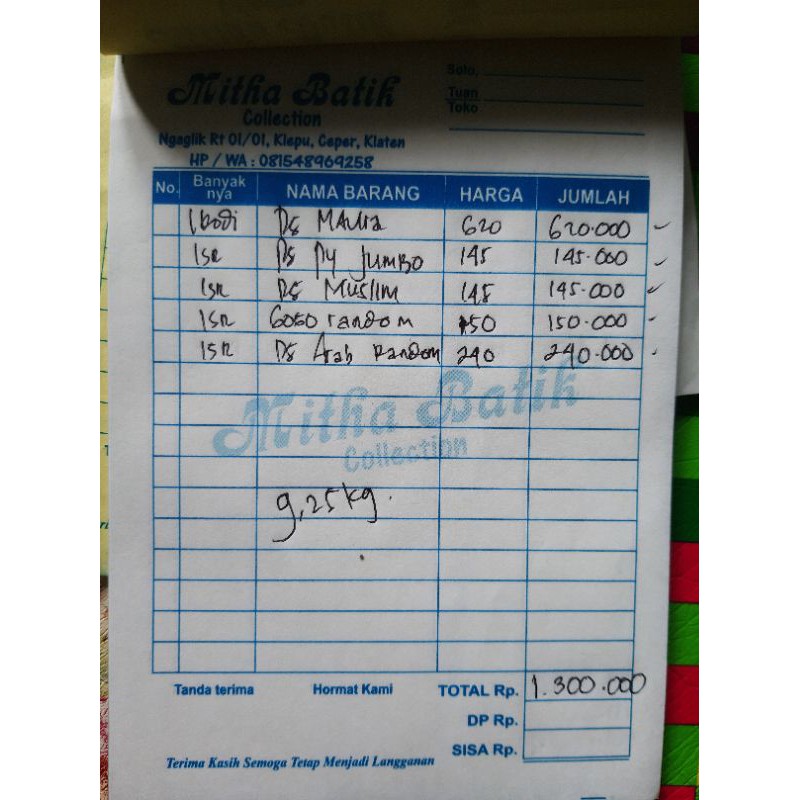 Mitha Batik
Collection
Ngaglik Rt 01/01, Klepu, Ceper, Klaten
HP / WA : 081548969258
Solo,
Tuan
Toko
No. Banyak nya NAMA BARANG HARGA JUMLAH
1 kodi Ds 620 620.000
1 SR Ds Py Jumbo 145 145.000
1 SR Ds Muslim 145 145.000
1 SR Gobo random 150 150.000
1 SR Ds Arab Random 240 240.000
Mitha Batik
Collection
9,25 kg.
Tanda terima Hormat Kami TOTAL Rp. 1.300.000
DP Rp.
SISA Rp.
Terima Kasih Semoga Tetap Menjadi Langganan